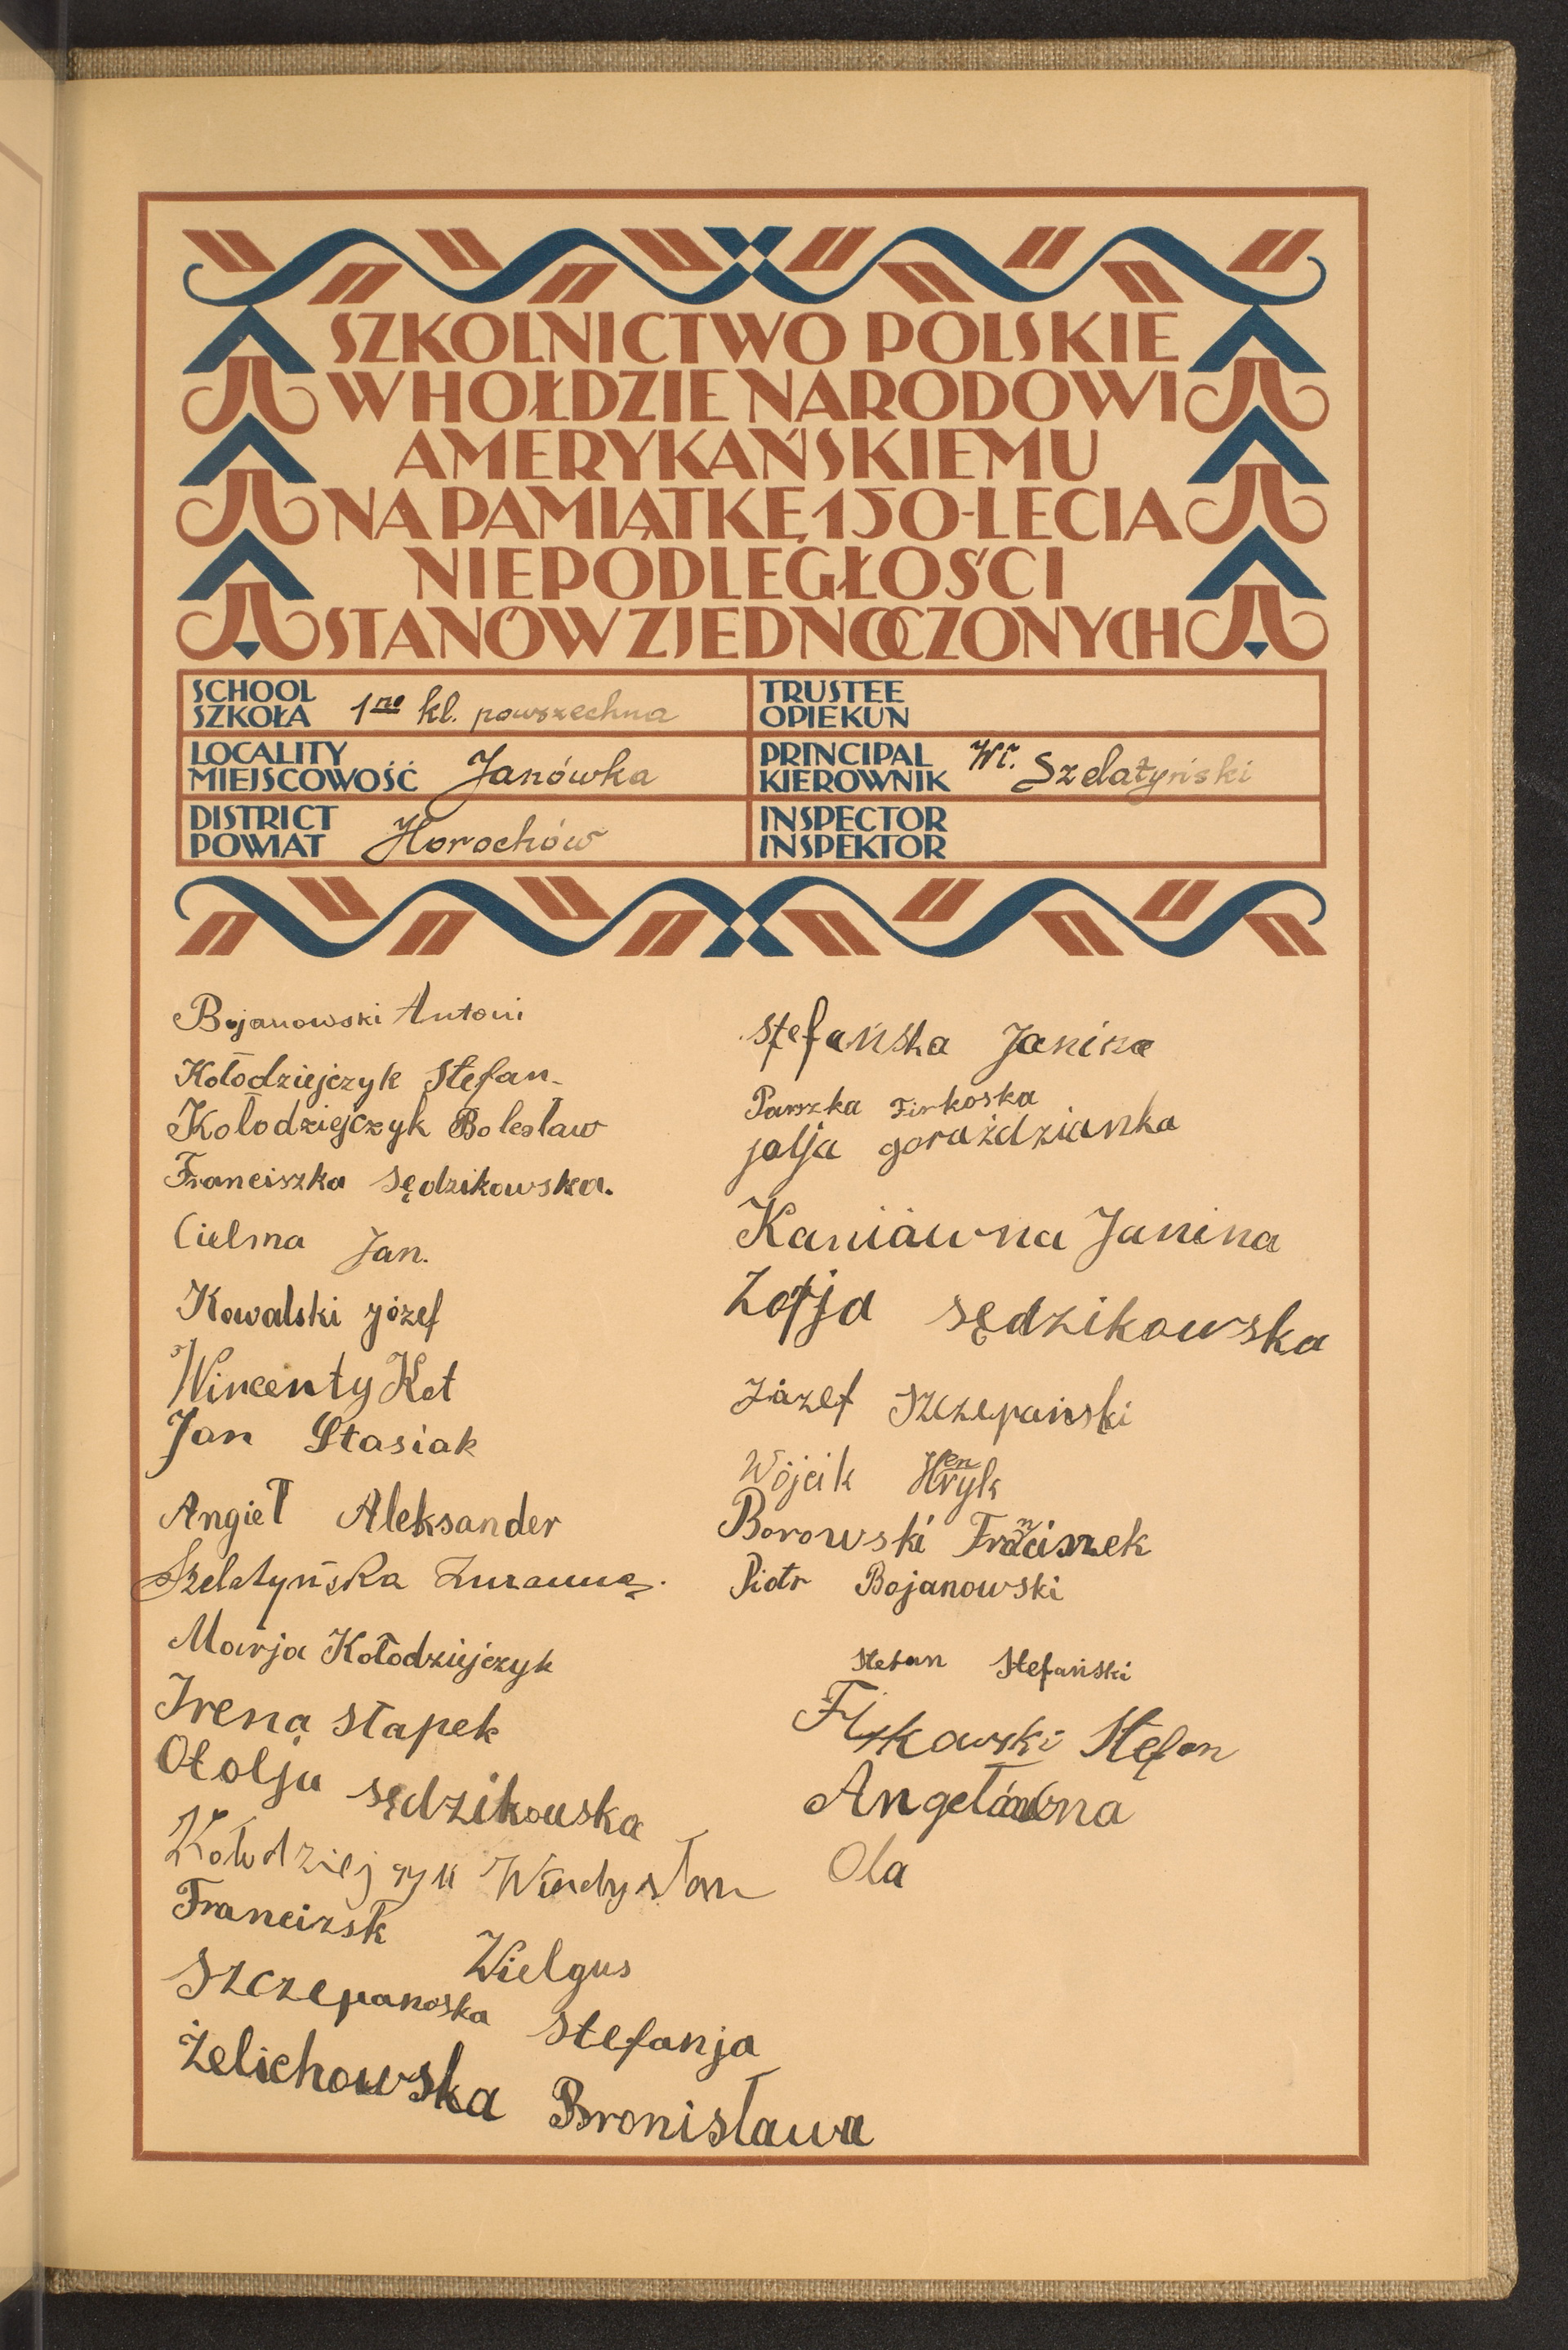 SZKOLNICTWO POLSKIE
W HOŁDZIE NARODOWI
AMERYKAŃSKIEMU
NA PAMIĄTKĘ 150-LECIA
NIEPODLEGŁOŚCI
STANÓW ZJEDNOCZONYCH
SCHOOL
SZKOŁA 1no kl. powszechna
TRUSTEE
OPIEKUN
LOCALITY
MIEJSCOWOŚĆ Janówka
PRINCIPAL
KIEROWNIK Wł. Szelatyński
DISTRICT
POWIAT Horochów
INSPECTOR
INSPEKTOR
Bojanowski Antoni
Kołodziejczyk Stefan
Kołodziejczyk Bolesław
Franciszka Sędzikowska.
Cielma Jan.
Kowalski Józef
Wincenty Kot
Jan Stasiak
Angieł Aleksander
Szelatyńska Zuzanna.
Marja Kołodziejczyk
Irena Słapek
Otolja Sędzikowska
Kołodziejczyk Władysław
Francizsk Wielgus
Szczepanoska Stefanja
Żelichowska Bronisława
Stefańska Janina
Paraszka Firkoska
jolja goraździanka
Kaniówna Janina
Zofja Sędzikowska
Józef Szczepański
Wójcik Henryk
Borowski Franciszek
Piotr Bojanowski
Stefan Stefański
Stefan
Angełówna
Ola